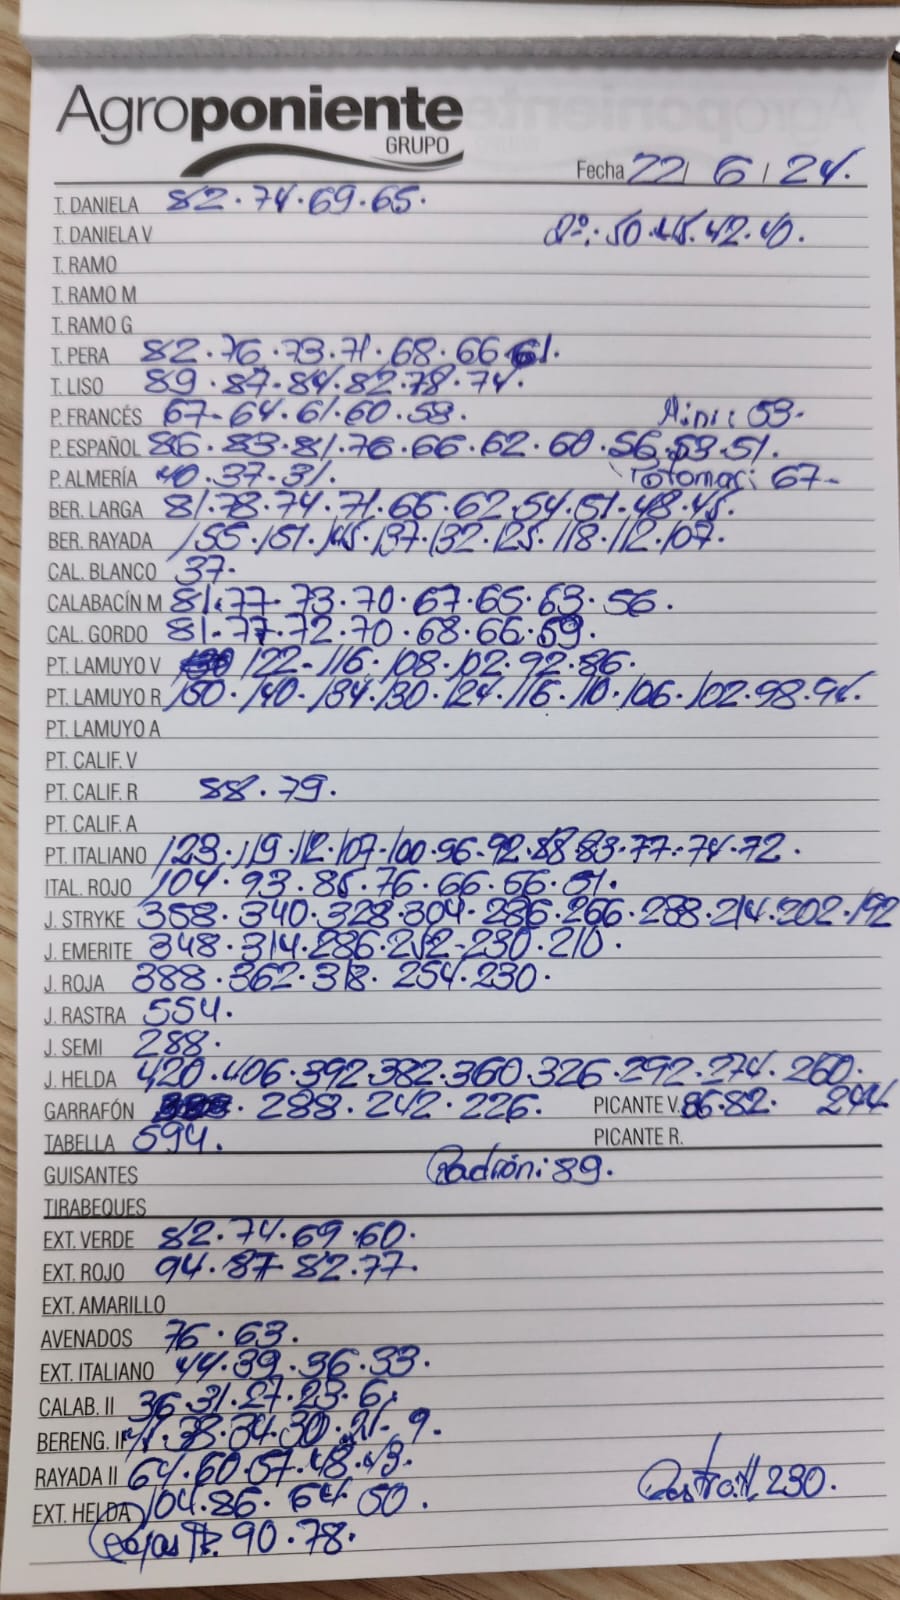 Agroponiente
GRUPO
Fecha 22 / 6 / 24.
T. DANELA 82.74.69.65.
T. DANIELA V 2º: 50.45.42.40.
T. RAMO
T. RAMO M
T. RAMO G
T. PERA 82.76.73.71.68.66.61.
T. LISO 89.87.84.82.78.74.
P. FRANCÉS 67-64.61.60.58. Mini: 53.
P. ESPAÑOL 86.83.81.76.66.62.60.56.53.51.
P. ALMERÍA 40.37.31. Potomac: 67-
BER. LARGA 81.78.74.71.66.62.54.51.48.45.
BER. RAYADA 155.151.145.137.132.125.118.112.107.
CAL. BLANCO 37.
CALABACÍN M 81.77-73.70.67.65.63.56.
CAL. GORDO 81-77-72.70.68.66.59.
PT. LAMUYO V 122-116.108.102.92.86.
PT. LAMUYO R 150.140.134.130.124.116.110.106.102.98.94.
PT. LAMUYO A
PT. CALIF. V
PT. CALIF. R 88.79.
PT. CALIF. A
PT. ITALIANO 123.119.112.107-100.96-92.88.83.77.74.72.
ITAL. ROJO 104.93.85.76.66.56.51.
J. STRYKE 358.340.328.304-286.266.288.214.202.192
J. EMERITE 348.314.286.252-230.210.
J. ROJA 388.362.318.254.230.
J. RASTRA 554.
J. SEMI 288.
J. HELDA 420.406.392.382.360.326.292.274.260.
GARRAFÓN 288.242.226. PICANTE V. 86.82. 244
TABELLA 594. PICANTE R.
GUISANTES Padrón: 89.
TIRABEQUES
EXT. VERDE 82.74.69.60.
EXT. ROJO 94.87-82.77.
EXT. AMARILLO
AVENADOS 76.63.
EXT. ITALIANO 44.39.36.33.
CALAB. II 36.31.27.23.6.
BERENG. II 41.38.34.30.21-9.
RAYADA II 64.60.57.48.43.
EXT. HELDA 104.86.64.50. 230.
90.78.